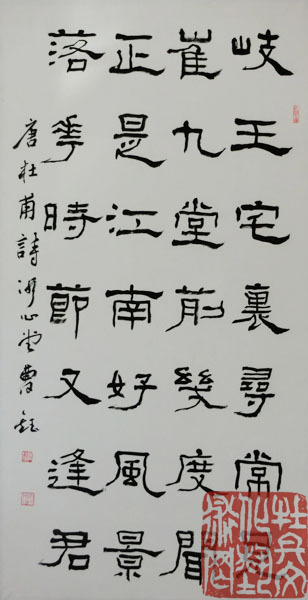 岐王宅裏尋常見
崔九堂前幾度聞
正是江南好風景
落華時節又逢君
唐杜甫詩 心堂曹